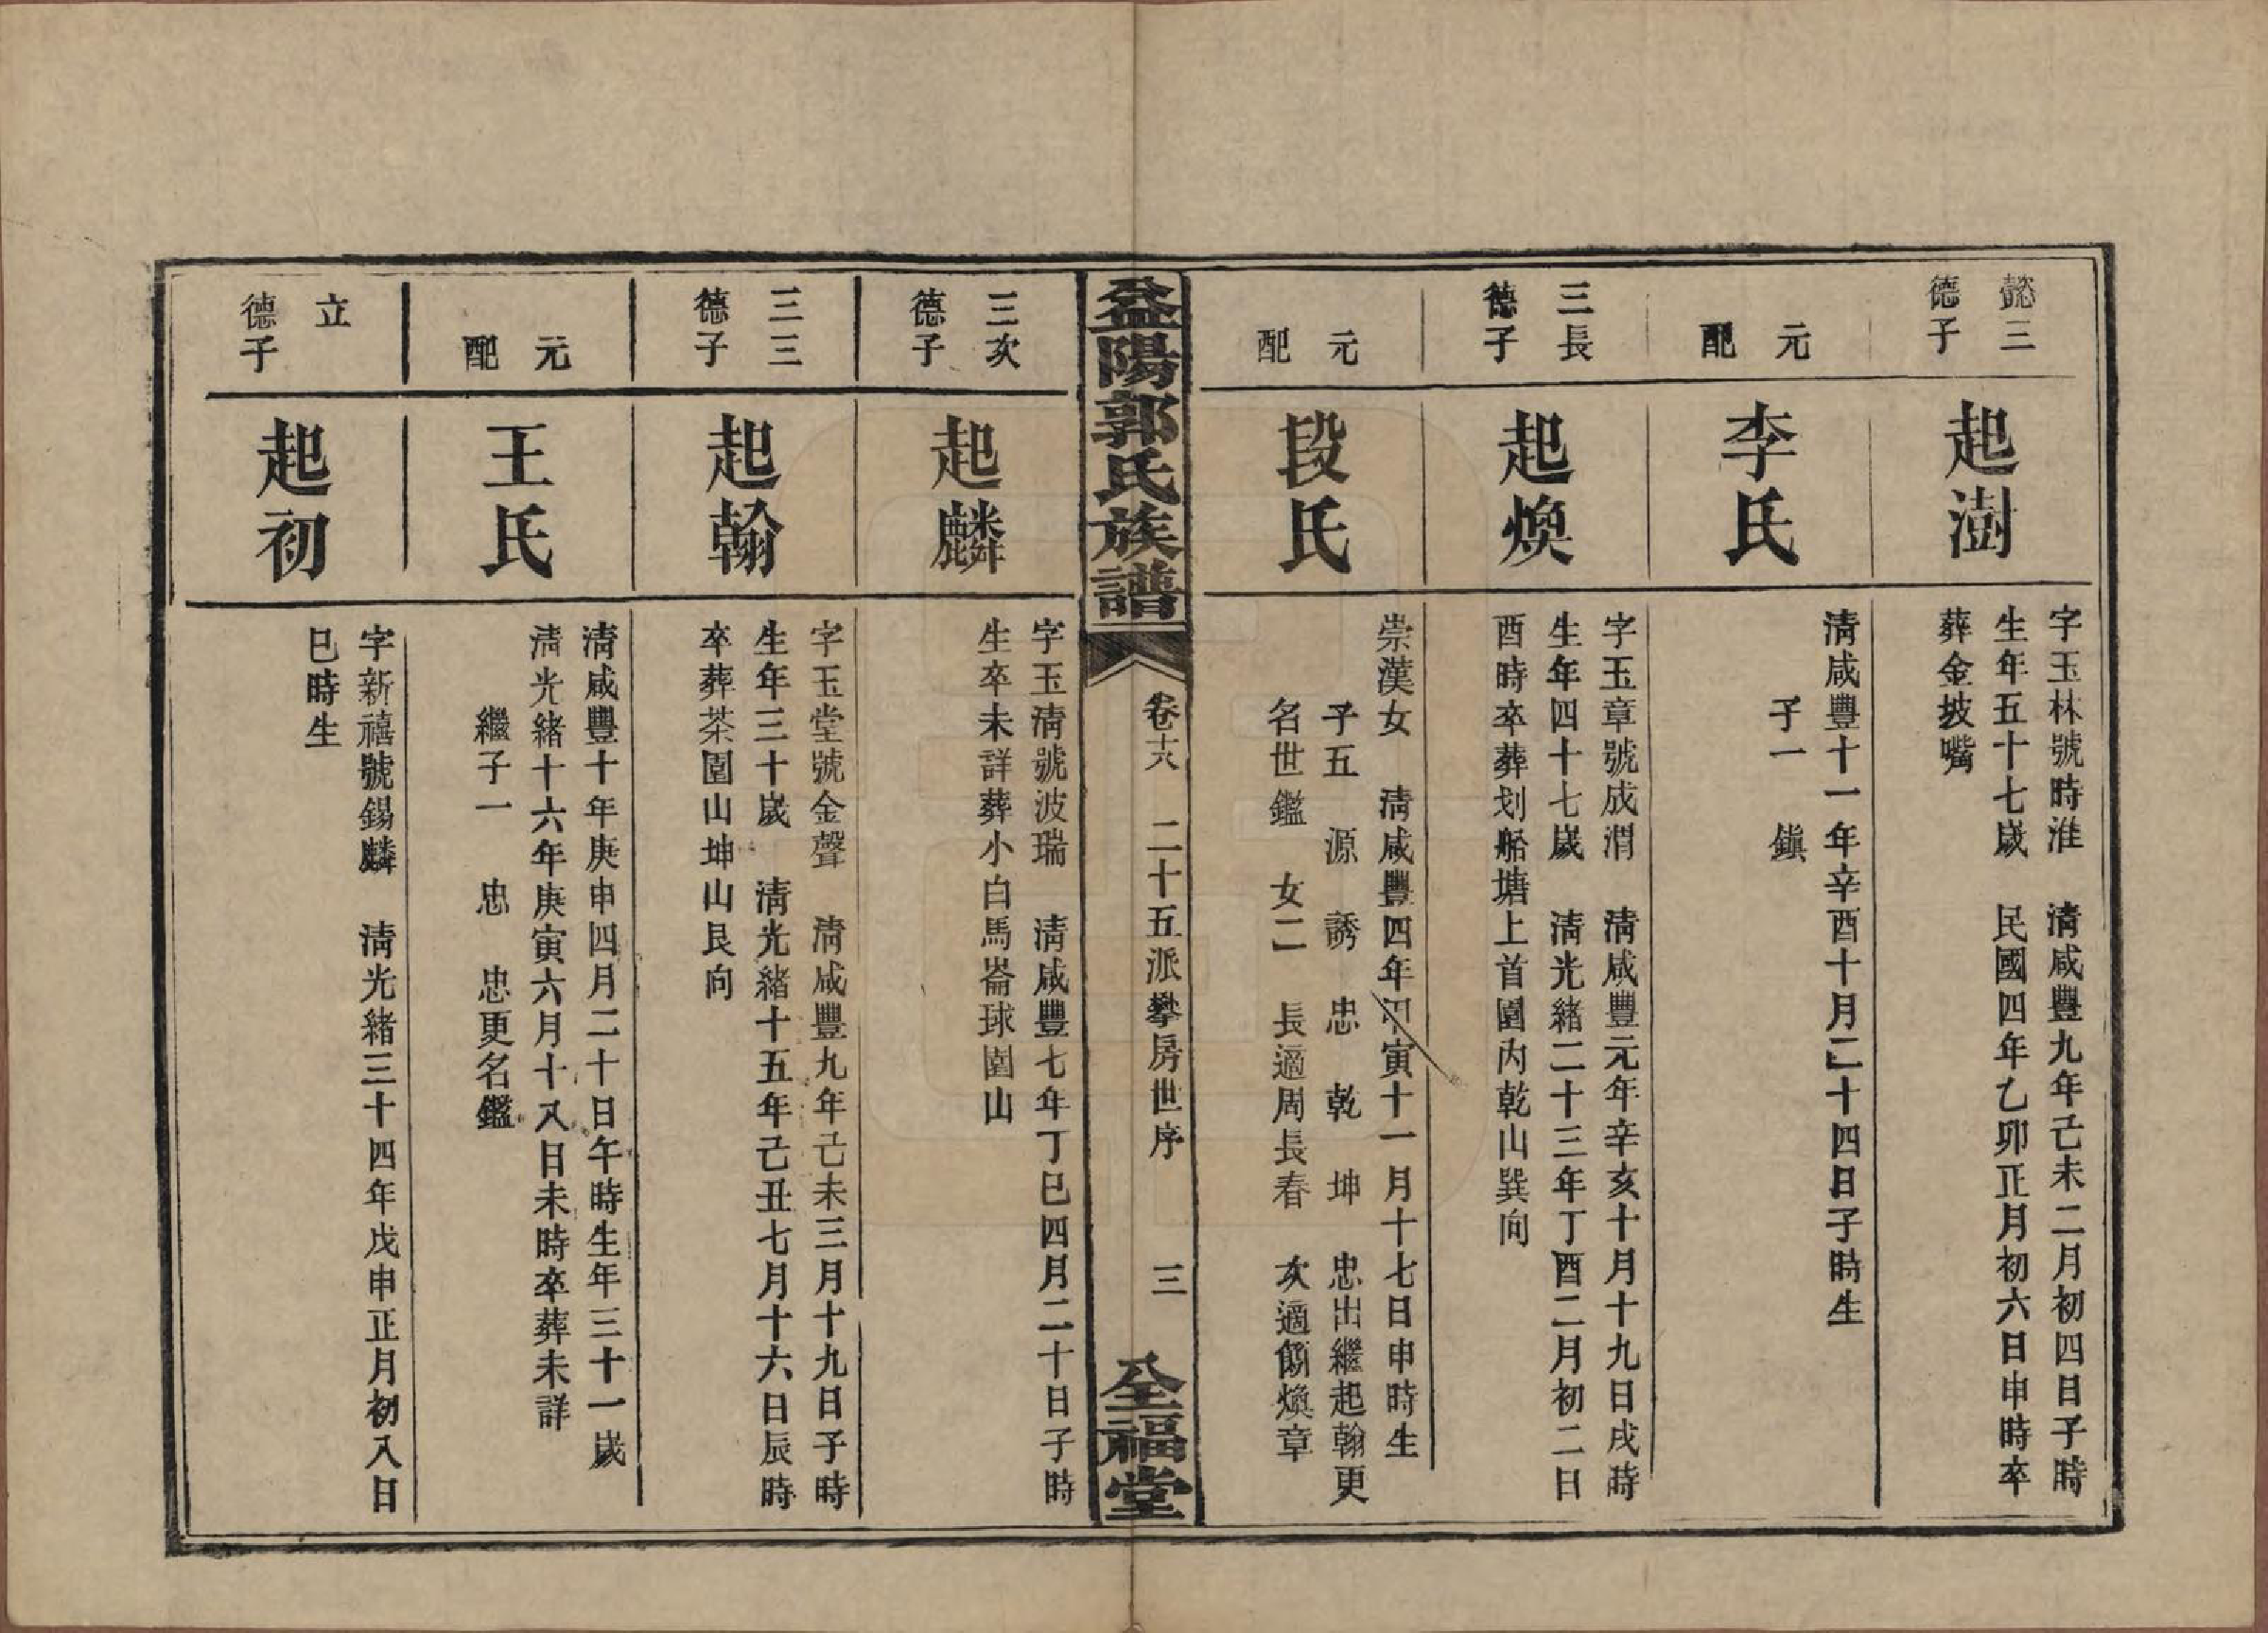 懿三
德子
起澍
字玉林號時淮　清咸豐九年己未二月初四日子時
生年五十七歲　民國四年乙卯正月初六日申時卒
葬金坡嘴
元
配
李氏
清咸豐十一年辛酉十月二十四日子時生
子一　鎮
三長
德子
起煥
字玉章號成渭　清咸豐元年辛亥十月十九日戌時
生年四十七歲　清光緒二十三年丁酉二月初二日
酉時卒葬划船塘上首園內乾山巽向
元
配
段氏
崇漢女　清咸豐四年甲寅十一月十七日申時生
子五　源　誘　忠　乾　坤　忠出繼起翰更
名世鑑　女二　長適周長春　次適餙煥章
益陽郭氏族譜
卷十六　二十五派攀房世序　三
全福堂
三次
德子
起麟
字玉清號波瑞　清咸豐七年丁巳四月二十日子時
生卒未詳葬小白馬崙球園山
三三
德子
起翰
字玉堂號金聲　清咸豐九年己未三月十九日子時
生年三十歲　清光緒十五年己丑七月十六日辰時
卒葬茶園山坤山艮向
元
配
王氏
清咸豐十年庚申四月二十日午時生年三十一歲
清光緒十六年庚寅六月十八日未時卒葬未詳
繼子一　忠　忠更名鑑
立
德子
起初
字新禧號錫麟　清光緒三十四年戊申正月初八日
巳時生